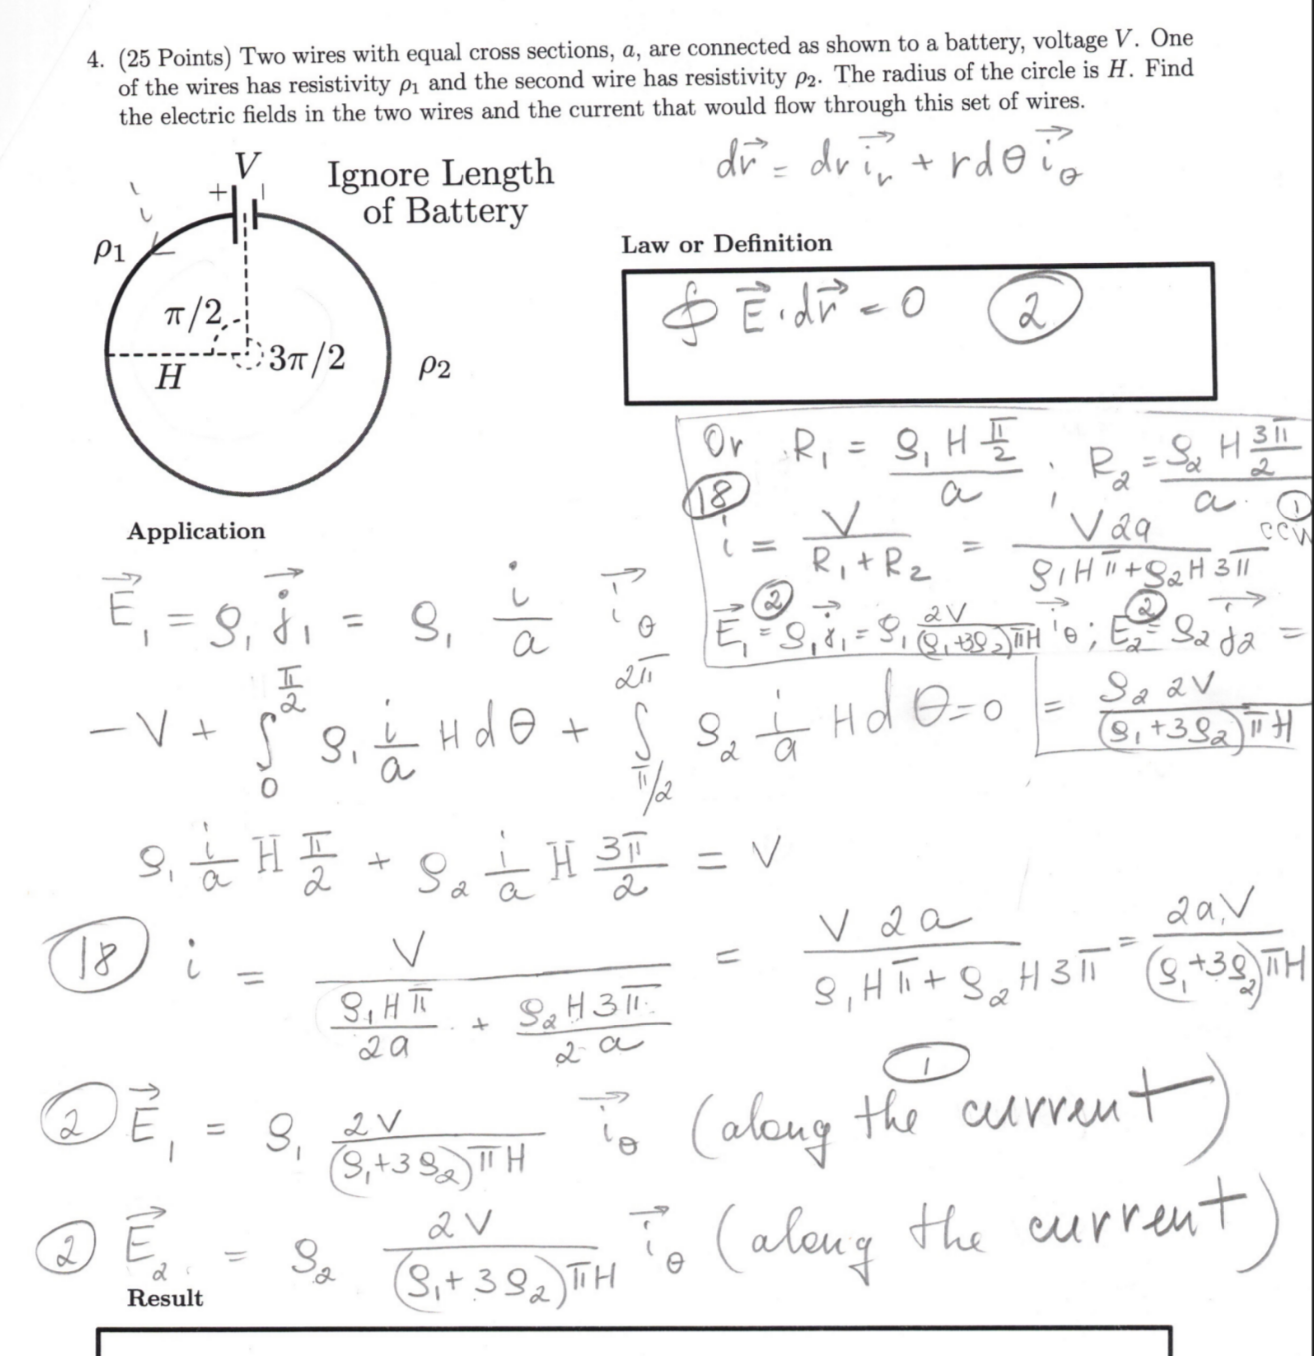 4. (25 Points) Two wires with equal cross sections, a, are connected as shown to a battery, voltage V. One
of the wires has resistivity ρ₁ and the second wire has resistivity ρ₂. The radius of the circle is H. Find
the electric fields in the two wires and the current that would flow through this set of wires.
dr⃗ = dr i⃗_r + r dθ i⃗_θ
V
+ |
Ignore Length
of Battery
i
ρ₁
π/2
3π/2
H
ρ₂
Law or Definition
∮ E⃗ · dr⃗ = 0 (2)
Or R₁ = ρ₁ H (π/2) / a ; R₂ = ρ₂ H (3π/2) / a
(18) i = V / (R₁ + R₂) = V 2a / (ρ₁Hπ + ρ₂H3π) (1) ccw
E⃗₁ (2) = ρ₁ j⃗₁ = ρ₁ 2V / ((ρ₁+3ρ₂)πH) i⃗_θ ; E⃗₂ (2) = ρ₂ j⃗₂ =
= ρ₂ 2V / ((ρ₁+3ρ₂)πH)
Application
E⃗₁ = ρ₁ j⃗₁ = ρ₁ i/a i⃗_θ
-V + ∫₀^{π/2} ρ₁ i/a H dθ + ∫_{π/2}^{2π} ρ₂ i/a H dθ = 0
ρ₁ i/a H π/2 + ρ₂ i/a H 3π/2 = V
(18) i = V / (ρ₁Hπ/2a + ρ₂H3π/2a) = V 2a / (ρ₁Hπ + ρ₂H3π) = 2aV / ((ρ₁+3ρ₂)πH)
(2) E⃗₁ = ρ₁ 2V / ((ρ₁+3ρ₂)πH) i⃗_θ (along the current) (1)
(2) E⃗₂ = ρ₂ 2V / ((ρ₁+3ρ₂)πH) i⃗_θ (along the current)
Result